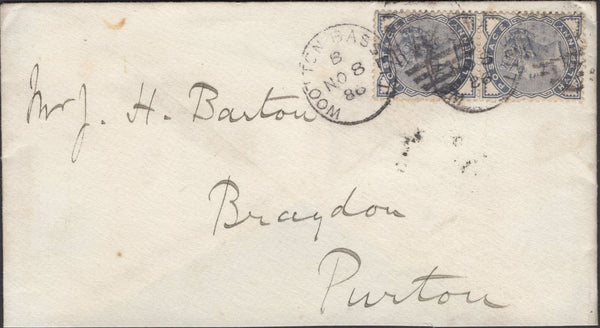 WOOTTON BASS
B
NO 8
86
Mr J. H. Barton
Braydon
Purton